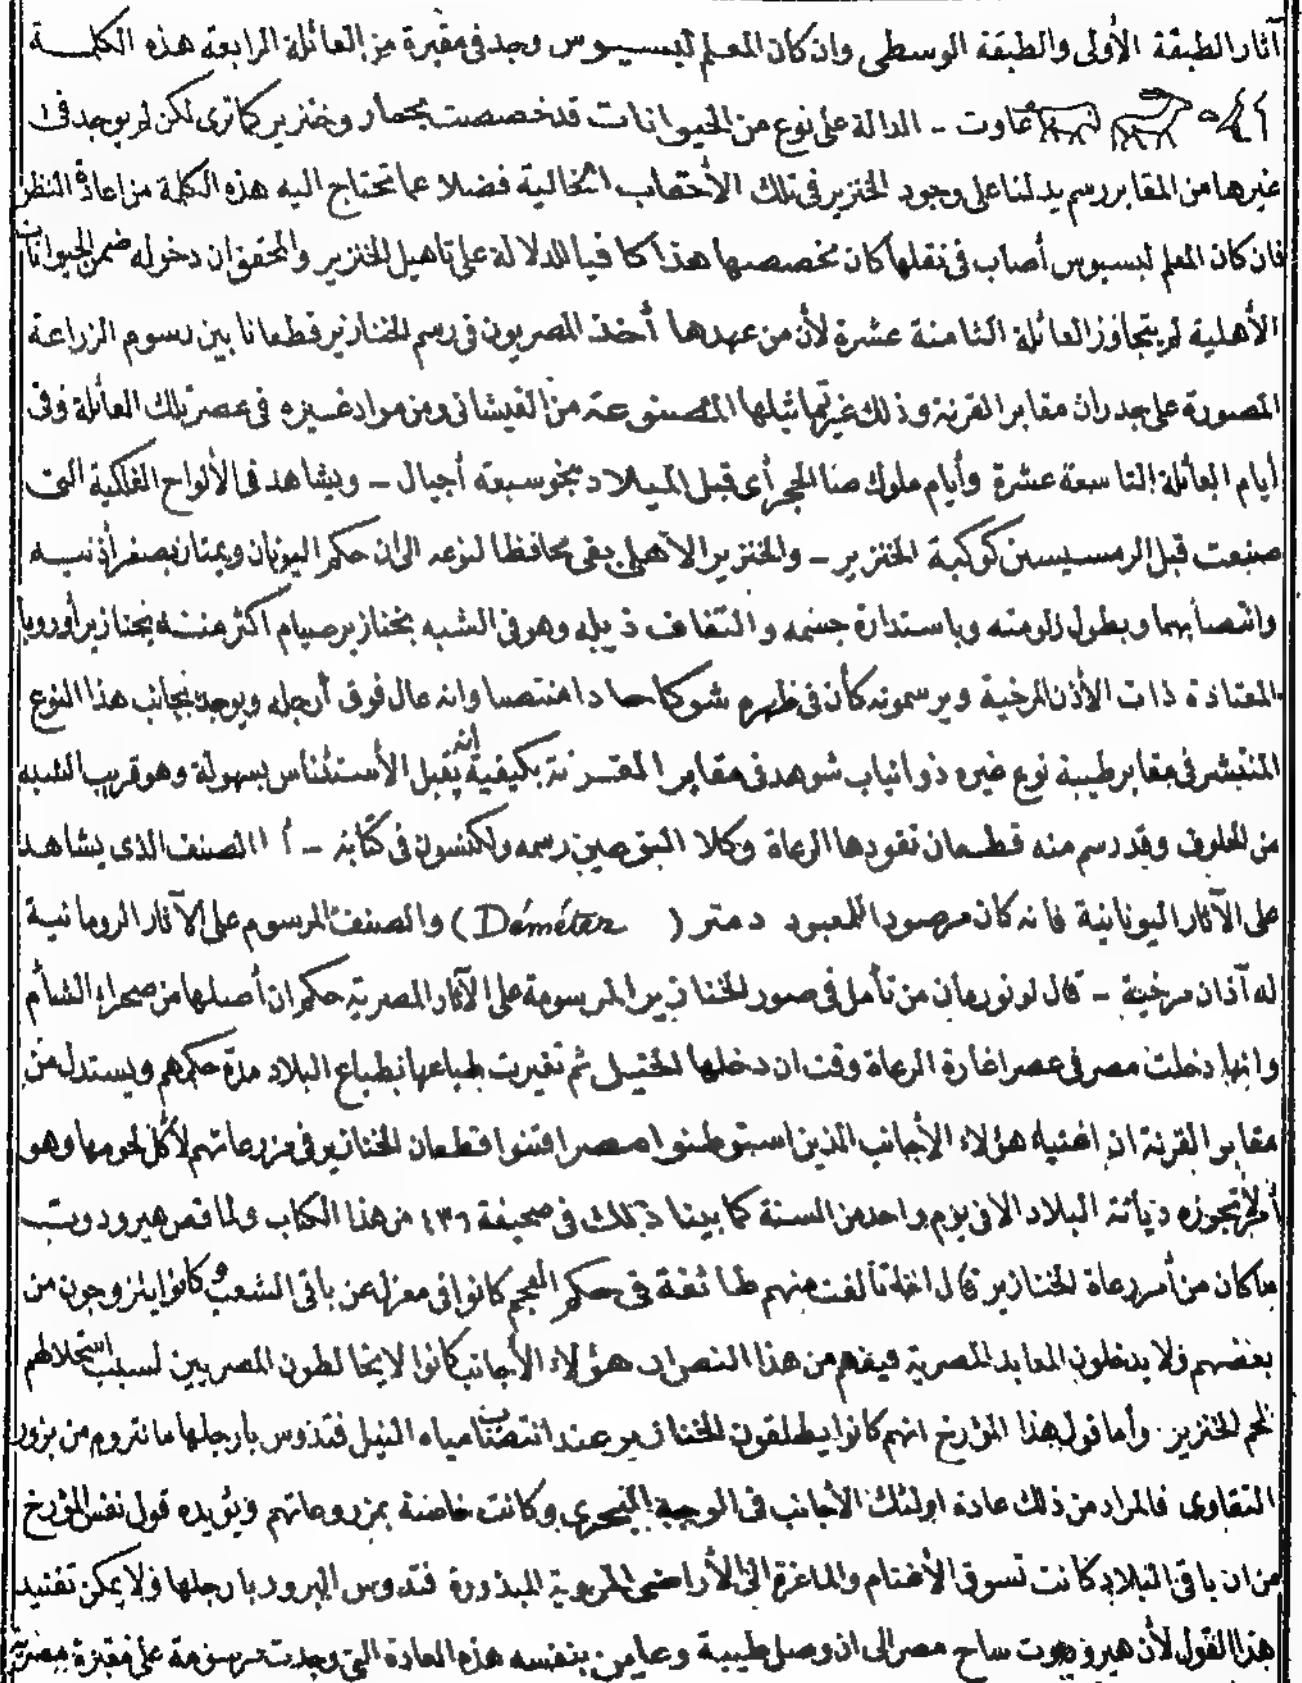 آثار الطبقة الأولى والطبقة الوسطى وان كان المعلم لبسيوس وجد فى مقبرة من العائلة الرابعة هذه الكلمة
عاوت - الدالة على نوع من الحيوانات قد خصصت بحمار وخنزير كما ترى لكن لم يوجد فى
غيرها من المقابر رسم يدلنا على وجود الخنزير فى تلك الأحقاب الخالية فضلا عما تحتاج اليه هذه الكلمة من اعادة النظر
فان كان المعلم لبسيوس أصاب فى نقلها كان مخصصها هذا كافيا للدلالة على تاهيل الخنزير والمحقق ان دخوله ضمن الحيوانات
الأهلية لم يتجاوز العائلة الثامنة عشرة لأن من عهدها أخذ المصريون فى رسم الخنازير قطعانا بين رسوم الزراعة
المصورة على جدران مقابر القرنة وذلك غير تماثيلها المصنوعة من القيشانى ومن مواد غيره فى عصر تلك العائلة وفى
أيام العائلة التاسعة عشرة وأيام ملوك صا الحجر أى قبل الميلاد بنحو سبعة أجيال - ويشاهد فى الألواح الفلكية التى
صنعت قبل الرمسيسين كوكبة الخنزير - والخنزير الأهلى بقى محافظا لنوعه الى ان حكم اليونان ويمتاز بصغر أذنيه
وانتصابهما وبطول زلومته وباستدارة جسمه والتفاف ذيله وهو فى الشبه بخنازير صيام أكثر منه بخنازير أوروبا
المعتادة ذات الأذن المرخية ويرسمونه كأن فى ظهره شوكا حادا منتصبا وانه عال فوق أرجله ويوجد بجانب هذا النوع
المنتشر فى مقابر طيبة نوع غيره ذو انياب شوهد فى مقابر القرنة بكيفية انه يقبل الأستئناس بسهولة وهو قريب الشبه
من الحلوف وقد رسم منه قطعان تقودها الرعاة وكلا النوعين رسمه ولكنسون فى كتابه - أما الصنف الذى يشاهد
على الآثار اليونانية فانه كان مرصودا للمعبود دمتر (Déméter) والصنف المرسوم على الآثار الرومانية
له آذان مرخية - قال لونورمان من تأمل فى صور الخنازير المرسومة على الآثار المصرية حكم ان أصلها من صحراء الشأم
وانها دخلت مصر فى عصر اغارة الرعاة وقت ان دخلها الخيل ثم تغيرت طباعها بطباع البلاد مدة حكمهم ويستدل من
مقابر القرنة ان اغنياء هؤلاء الأجانب الذين استوطنوا مصر اقتنوا قطعان الخنازير فى مزروعاتهم لأكل لحومها وهو
أمر لم تجوزه ديانة البلاد الا فى يوم واحد من السنة كما بينا ذلك فى صحيفة ٤٣٦ من هذا الكتاب ولما قص هيرودوت
ما كان من أمر رعاة الخنازير قال انه تألفت منهم طائفة فى حكم العجم كانوا فى معزل عن باقى الشعب وكانوا يتزوجون من
بعضهم ولا يدخلون المعابد المصرية فيفهم من هذا النص ان هؤلاء الأجانب كانوا لا يخالطون المصريين لسبب استحلالهم
لحم الخنزير. وأما قول هذا المؤرخ انهم كانوا يطلقون الخنازير عند انتضاب مياه النيل فتدوس بارجلها ما تروم من بزور
التقاوى فالمراد من ذلك عادة اولئك الأجانب فى الوجه البحرى وكانت خاصة بمزروعاتهم ويؤيده قول نفس المؤرخ
من ان باقى البلاد كانت تسوق الأغنام والماعزة الى الأراضى المروية المبذورة فتدوس البزور بارجلها ولا يمكن تفنيد
هذا القول لأن هيرودوت ساح مصر الى ان وصل طيبة وعاين بنفسه هذه العادة التى وجدت مرسومة على مقبرة مصرية